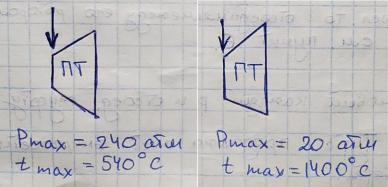 ПТ
Pmax = 240 атм
t max = 540°C
ПТ
Pmax = 20 атм
t max = 1400°C